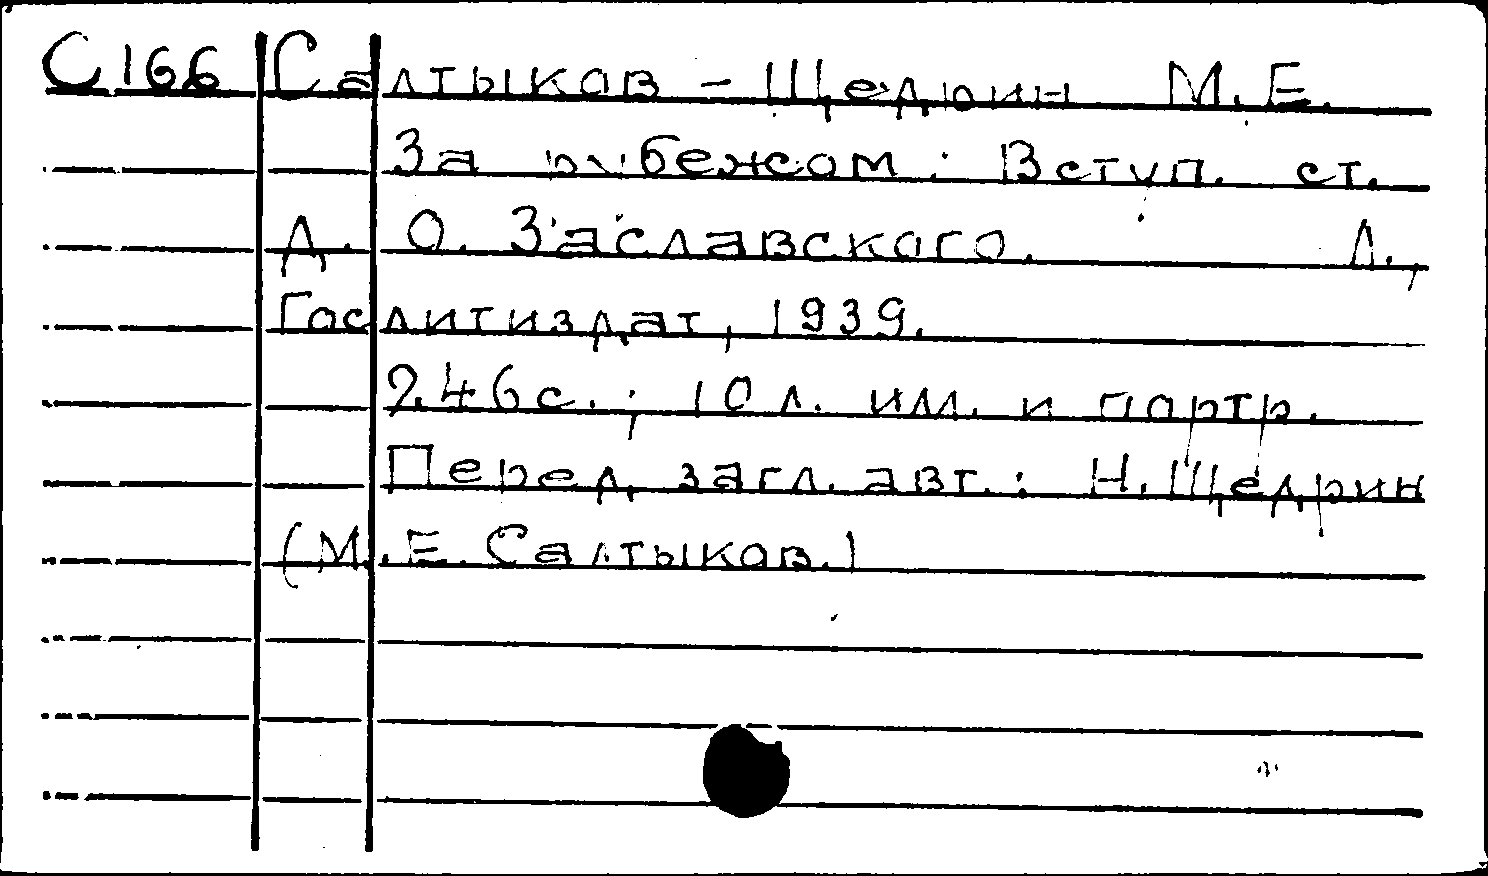 С166 Салтыков-Щедрин М.Е.
За рубежом: Вступ. ст.
Д. О. Заславского. Л.,
Гослитиздат, 1939.
246 с.; 10 л. илл. и портр.
Перед загл. авт.: Н. Щедрин
(М.Е. Салтыков.)